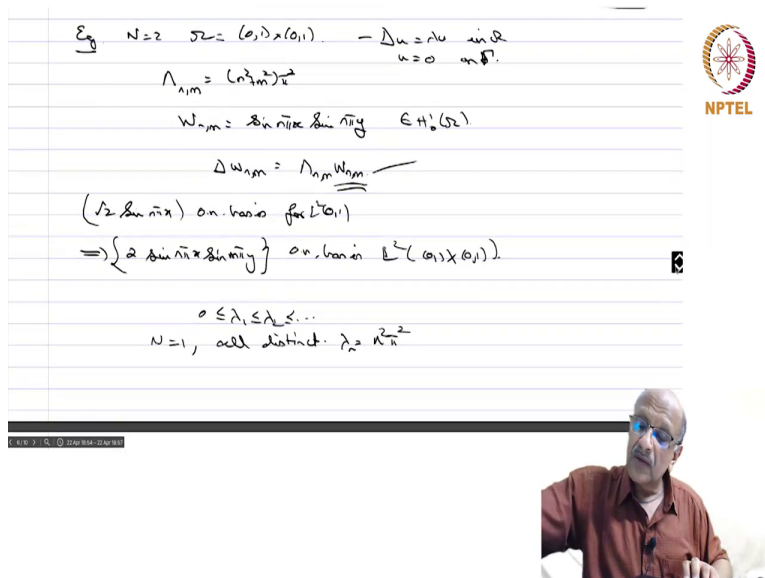 Eg. N=2 Ω = (0,1)×(0,1). -Δu = λu in Ω
u=0 on Γ.
Λn,m = (n²+m²)π²
Wn,m = sin nπx sin mπy ∈ H¹₀(Ω).
Δwn,m = Λn,m Wn,m
(√2 sin nπx) o.n. basis for L²(0,1)
⟹ {2 sin nπx sin mπy} o.n. basis L²((0,1)×(0,1)).
0 ≤ λ₁ ≤ λ₂ ≤ ...
N=1, all distinct. λn = n²π²
NPTEL
6/10
22 Apr 18:54 - 22 Apr 18:57